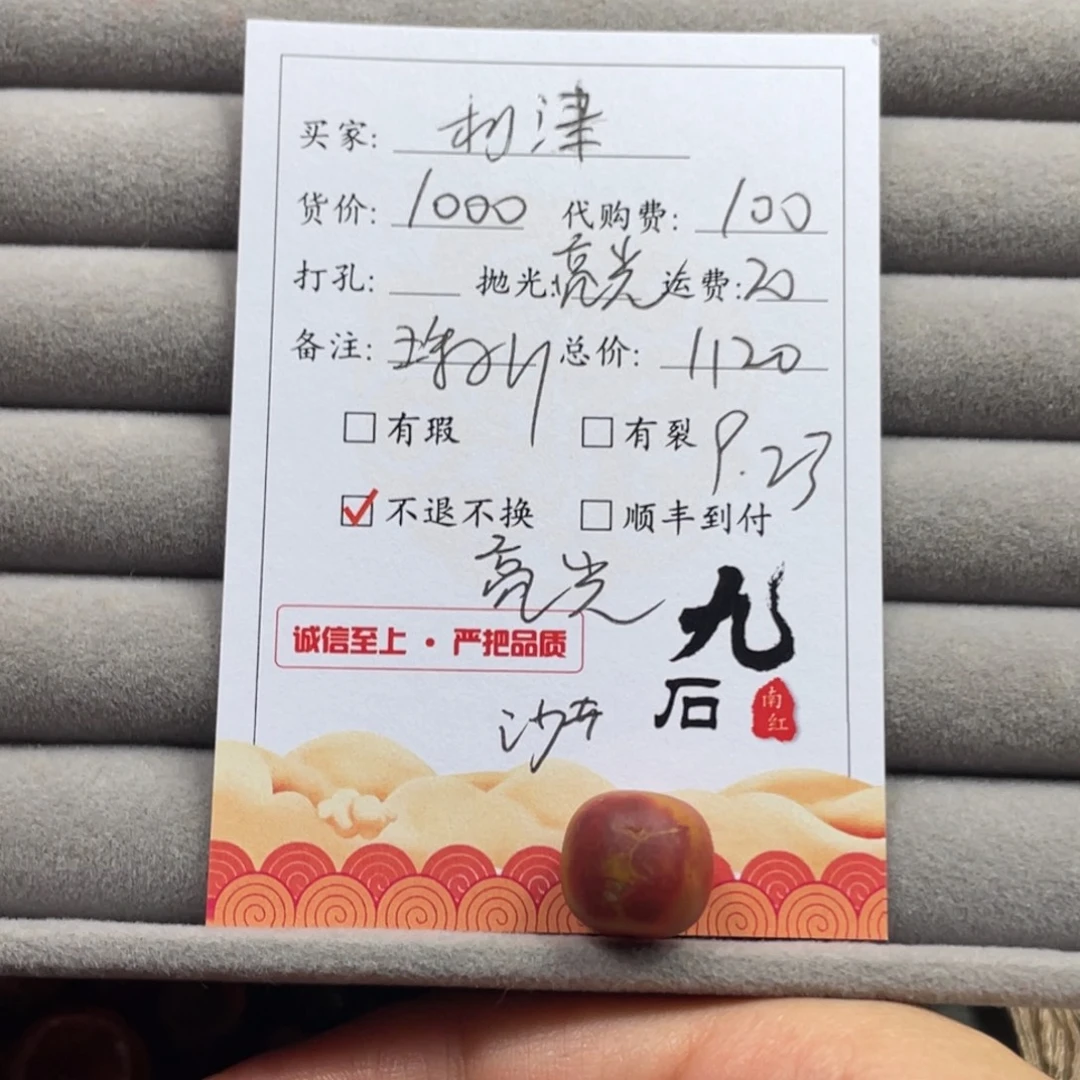 买家: 利津
货价: 1000 代购费: 100
打孔: 抛光: 亮光 运费: 20
备注: 总价: 1120
有瑕 有裂 9.23
不退不换 顺丰到付
亮光
诚信至上 · 严把品质
九
石 南红